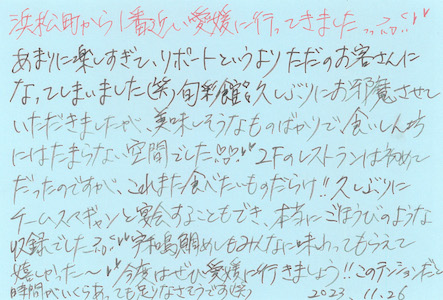 浜松町から1番近い愛媛に行ってきました
あまりに楽しすぎて、リポートというよりただのお客さんに
なってしまいました(笑)旬彩館。久しぶりにお邪魔させて
いただきましたが、美味しそうなものばかりで、食いしん坊
にはたまらない空間でした♡♡ 2Fのレストランは初めて
だったのですが、これまた食べたいものだらけ!!久しぶりに
チームスマギャンと宴会することもでき、本当にごほうびのような
収録でした 宇和島鯛めしもみんなに味わってもらえて
嬉しかった〜 今度はぜひ愛媛に行きましょう!!このテンションだと
時間がいくらあっても足りなさそうです(笑) 2023.11.26